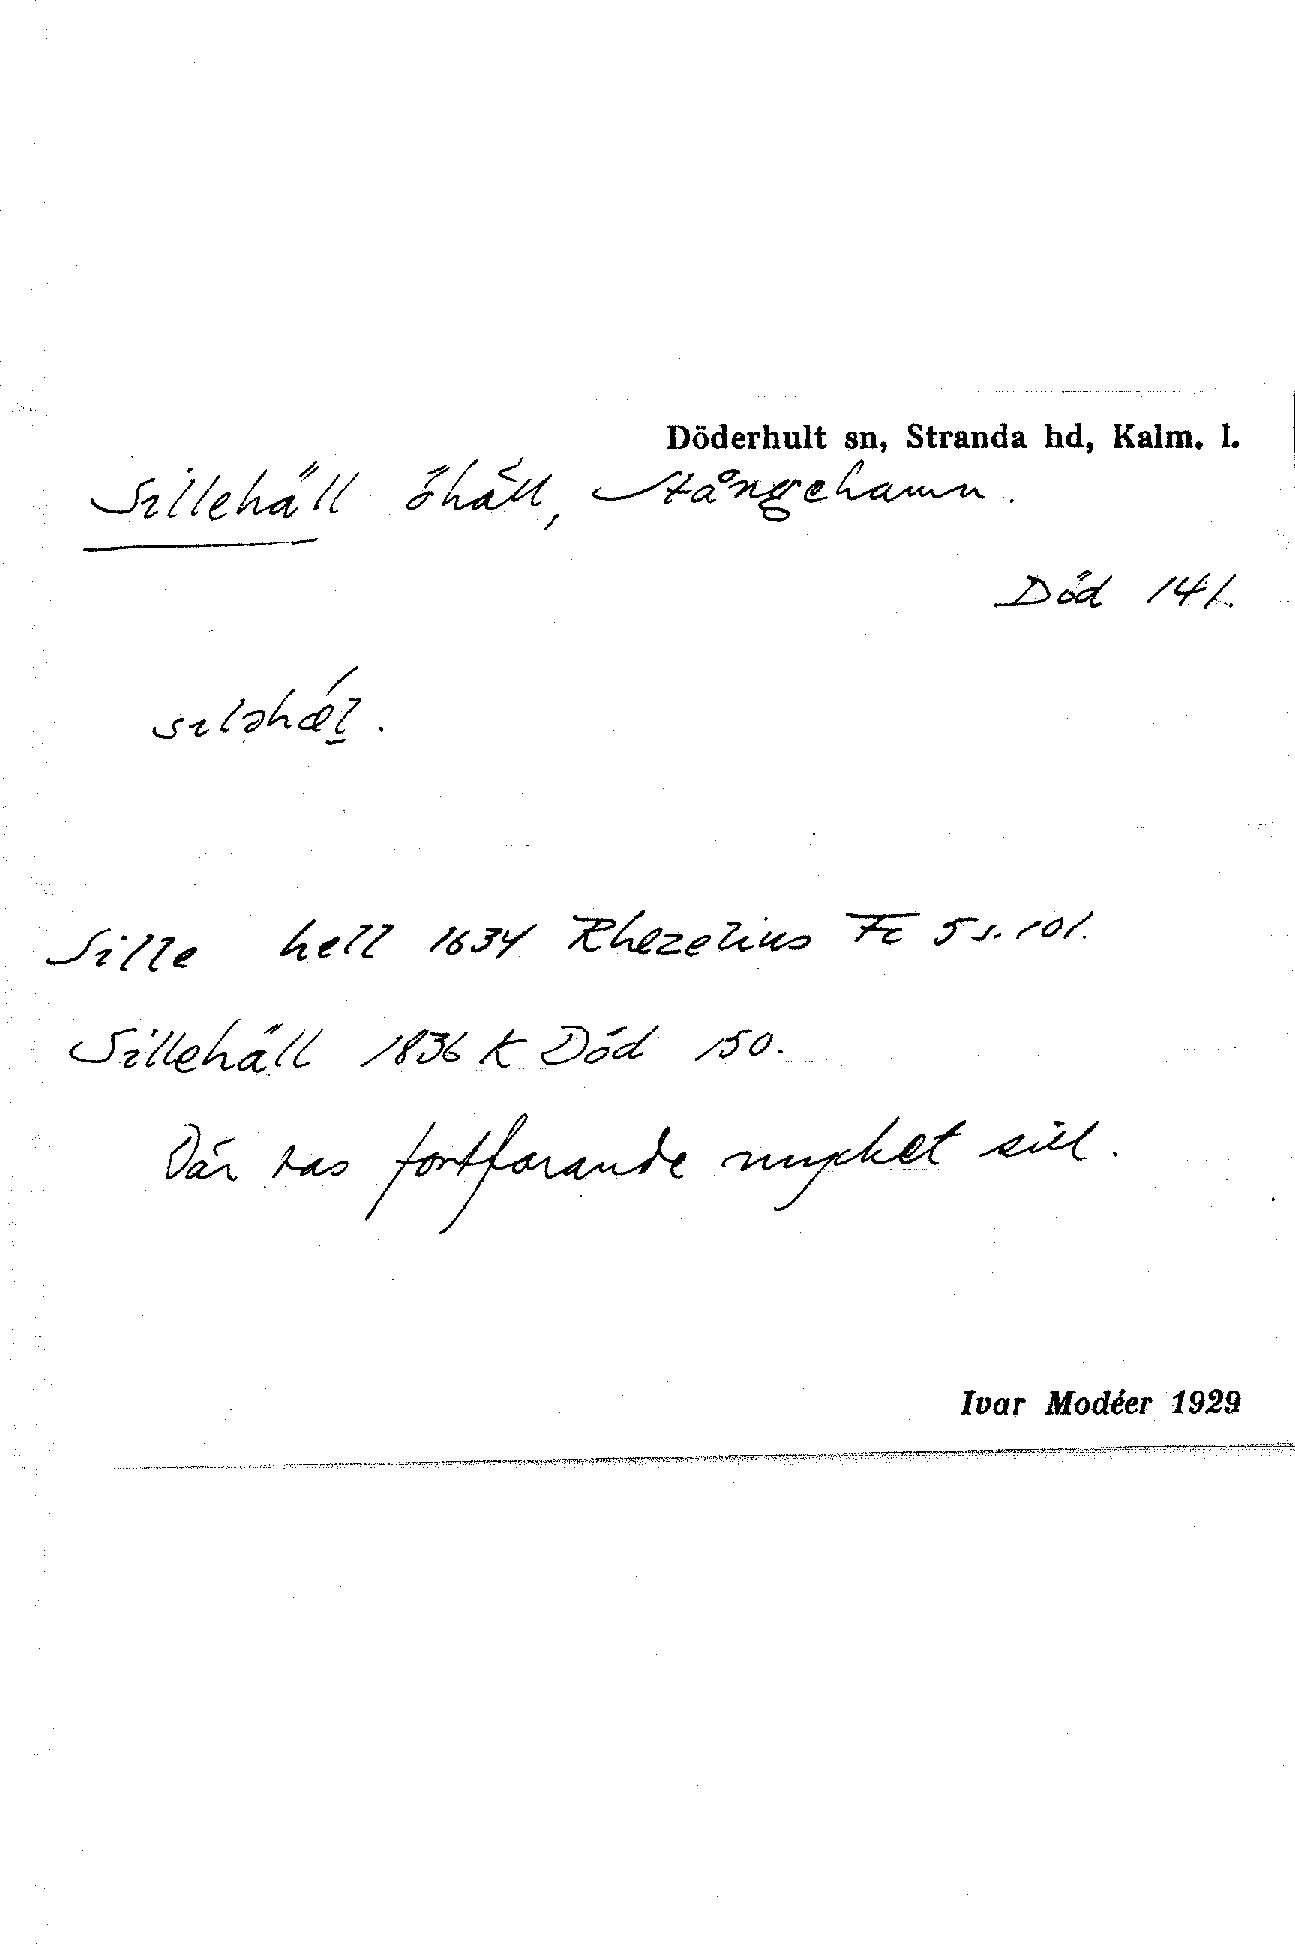 Döderhult sn, Stranda hd, Kalm. l.
Sillehäll öhäll, Stångehamn.
Död 141.
sɪləhǽl̠.
Sille hell 1634 Rhezelius Fc 5 s. 101.
Sillehäll 1836 K Död 150.
Där tas fortfarande mycket sill.
Ivar Modéer 1929